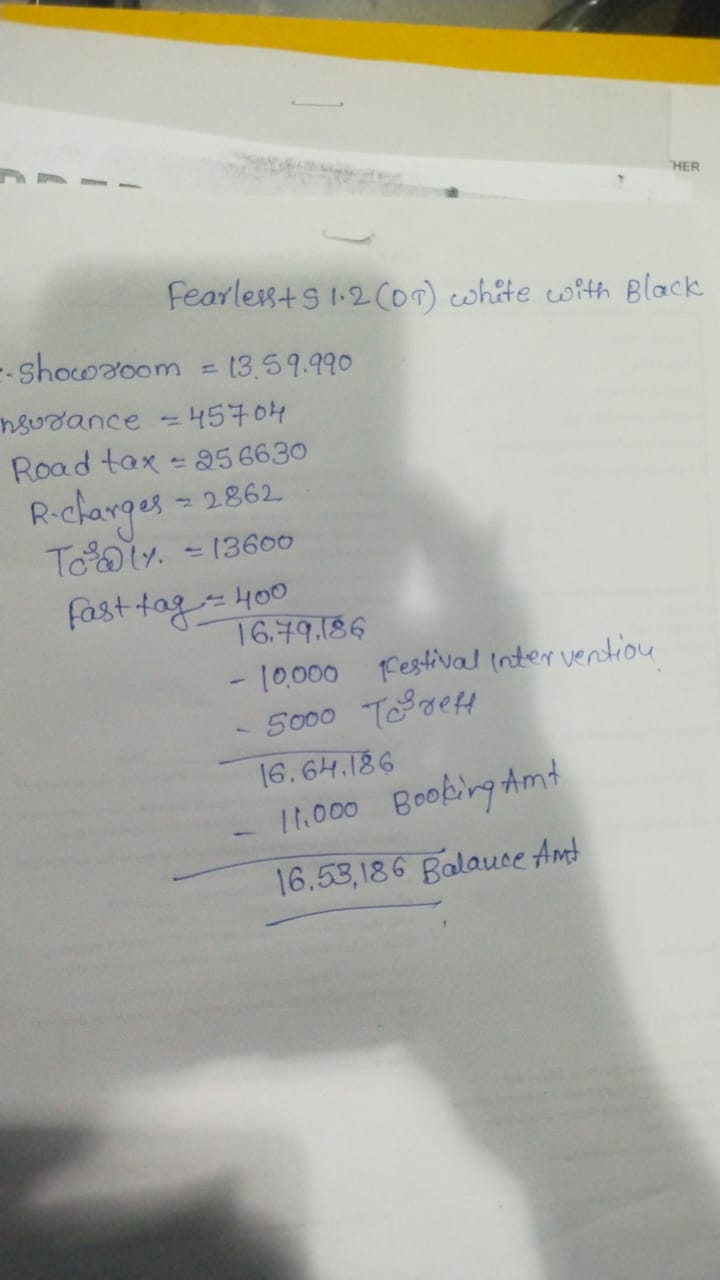 HER
Fearless+S 1.2 (DT) white with Black
-Showroom = 13.59.990
nsurance = 45704
Road tax = 256630
R-charges = 2862
Tcs@1%. = 13600
Fast tag = 400
16.79.186
- 10.000 Festival Intervention
- 5000 Tcs reff
16.64.186
- 11.000 Booking Amt
16.53,186 Balance Amt